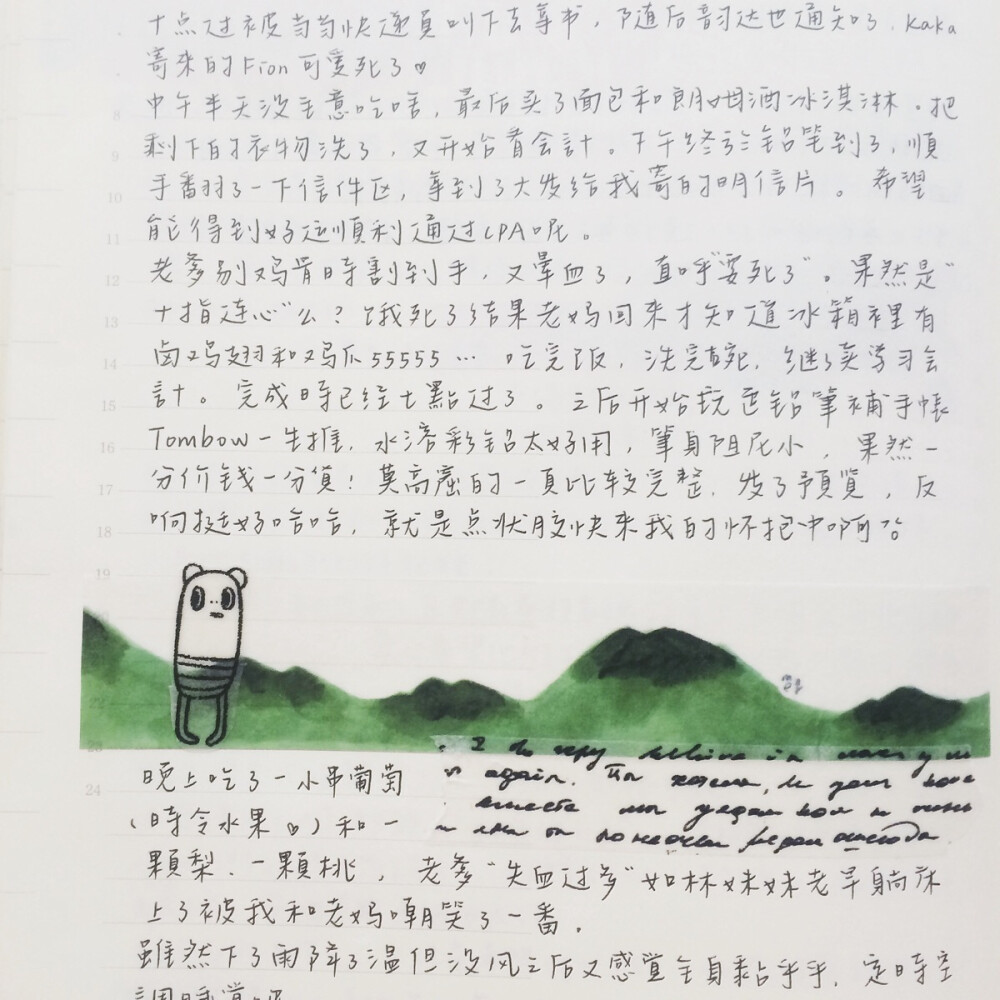 十点过被当当快递員叫下去拿书，随后韵达也通知了. kaka
寄来的Fion可爱死了♡
8
中午半天没主意吃啥，最后买了面包和朗姆酒冰淇淋。把
剩下的衣物洗了，又开始看会計。下午终於铅笔到了，順
9
手翻了一下信件区，拿到了大发给我寄的明信片。希望
10
能得到好运順利通过CPA呢。
11
老爹剐鸡胃時割到手，又暈血了，直呼"要死了"。果然是"
12
十指连心"么？饿死了结果老妈回来才知道冰箱裡有
13
卤鸡翅和鸡爪55555… 吃完饭，洗完碗，继续学习会
14
計。完成時已经七點过了。之后开始玩転铅筆補手帳
15
Tombow一生推，水溶彩铅太好用，筆身阻尼小，果然一
16
分价钱一分貨！莫高窟的一頁比较完整，发了預覽，反
17
响挺好哈哈，就是点状胶快来我的怀抱中啊哈
18
19
22
23
晚上吃了一小串葡萄
24
（時令水果♡）和一
again.
顆梨、一顆桃，老爹"失血过多"如林妹妹老早躺床
上了被我和老妈嘲笑了一番。
雖然下了雨降了温但没风之后又感覚全身黏乎乎，定時空
調睡覚吧